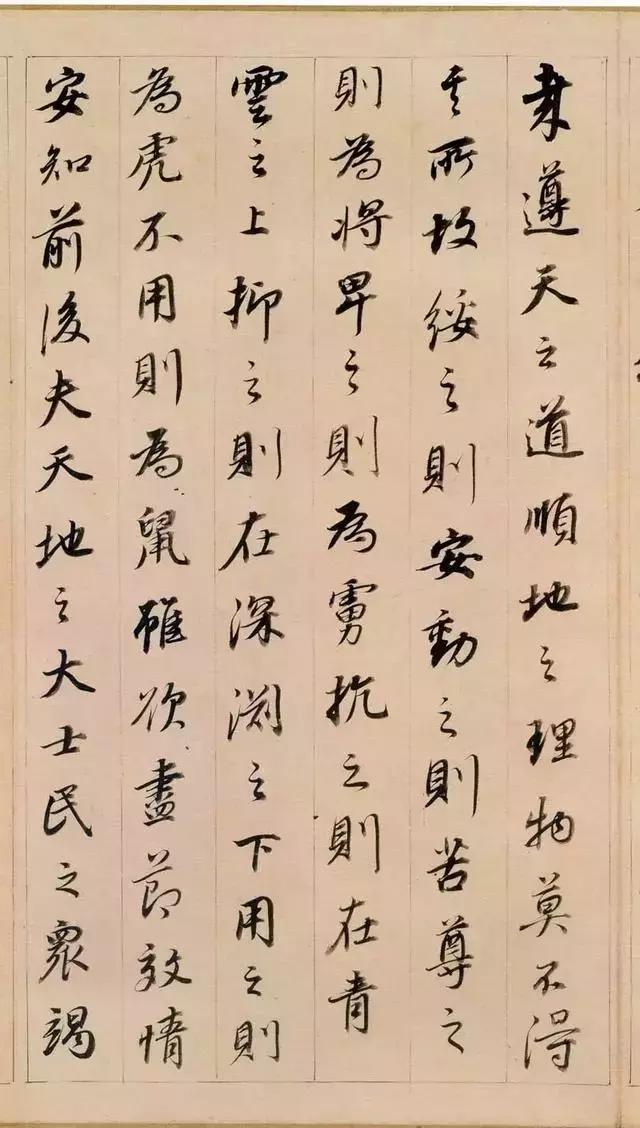 哉遵天之道順地之理物莫不得
其所故綏之則安動之則苦尊之
則為將卑之則為虜抗之則在青
雲之上抑之則在深淵之下用之則
為虎不用則為鼠雖欲盡節效情
安知前後夫天地之大士民之眾竭